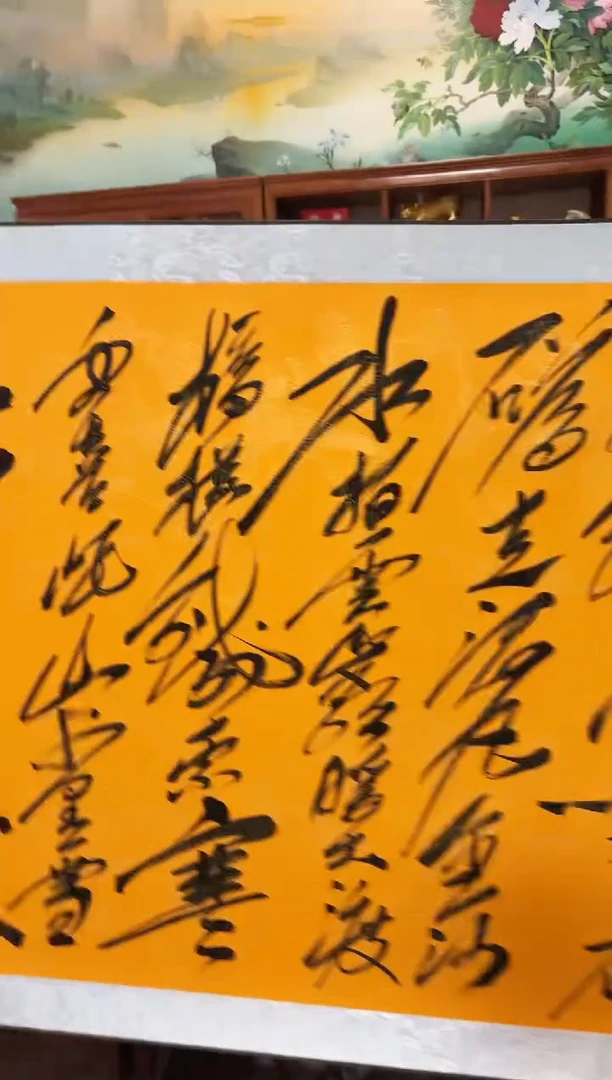 礴走泥丸金沙
水拍云崖暖大渡
桥横铁索寒
更喜岷山千里雪